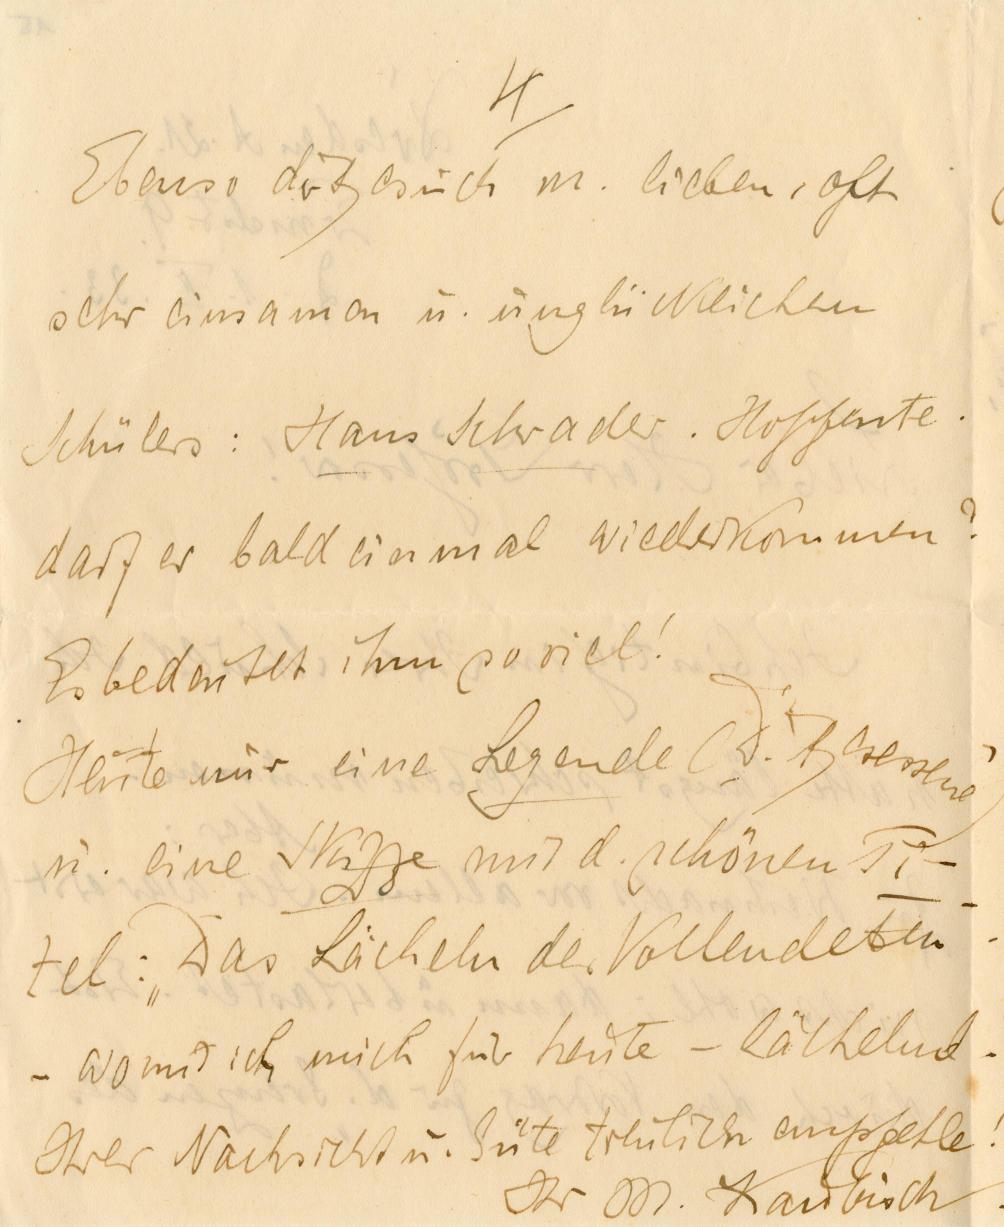 4
Ebenso d. Besuch m. lieben, oft
sehr einsamen u. unglücklichen
Schülers: Hans Schrader. Hoffentl.
darf er bald einmal wiederkommen?
Es bedeutet ihm so viel!
Heute nur eine Legende (D. Besessene)
u. eine Skizze mit d. schönen Ti-
tel: „Das Lächeln der Vollendeten
- womit ich mich für heute – lächelnd -
Ihrer Nachsicht u. Güte treulich empfehle!
Ihr M. Kaubisch